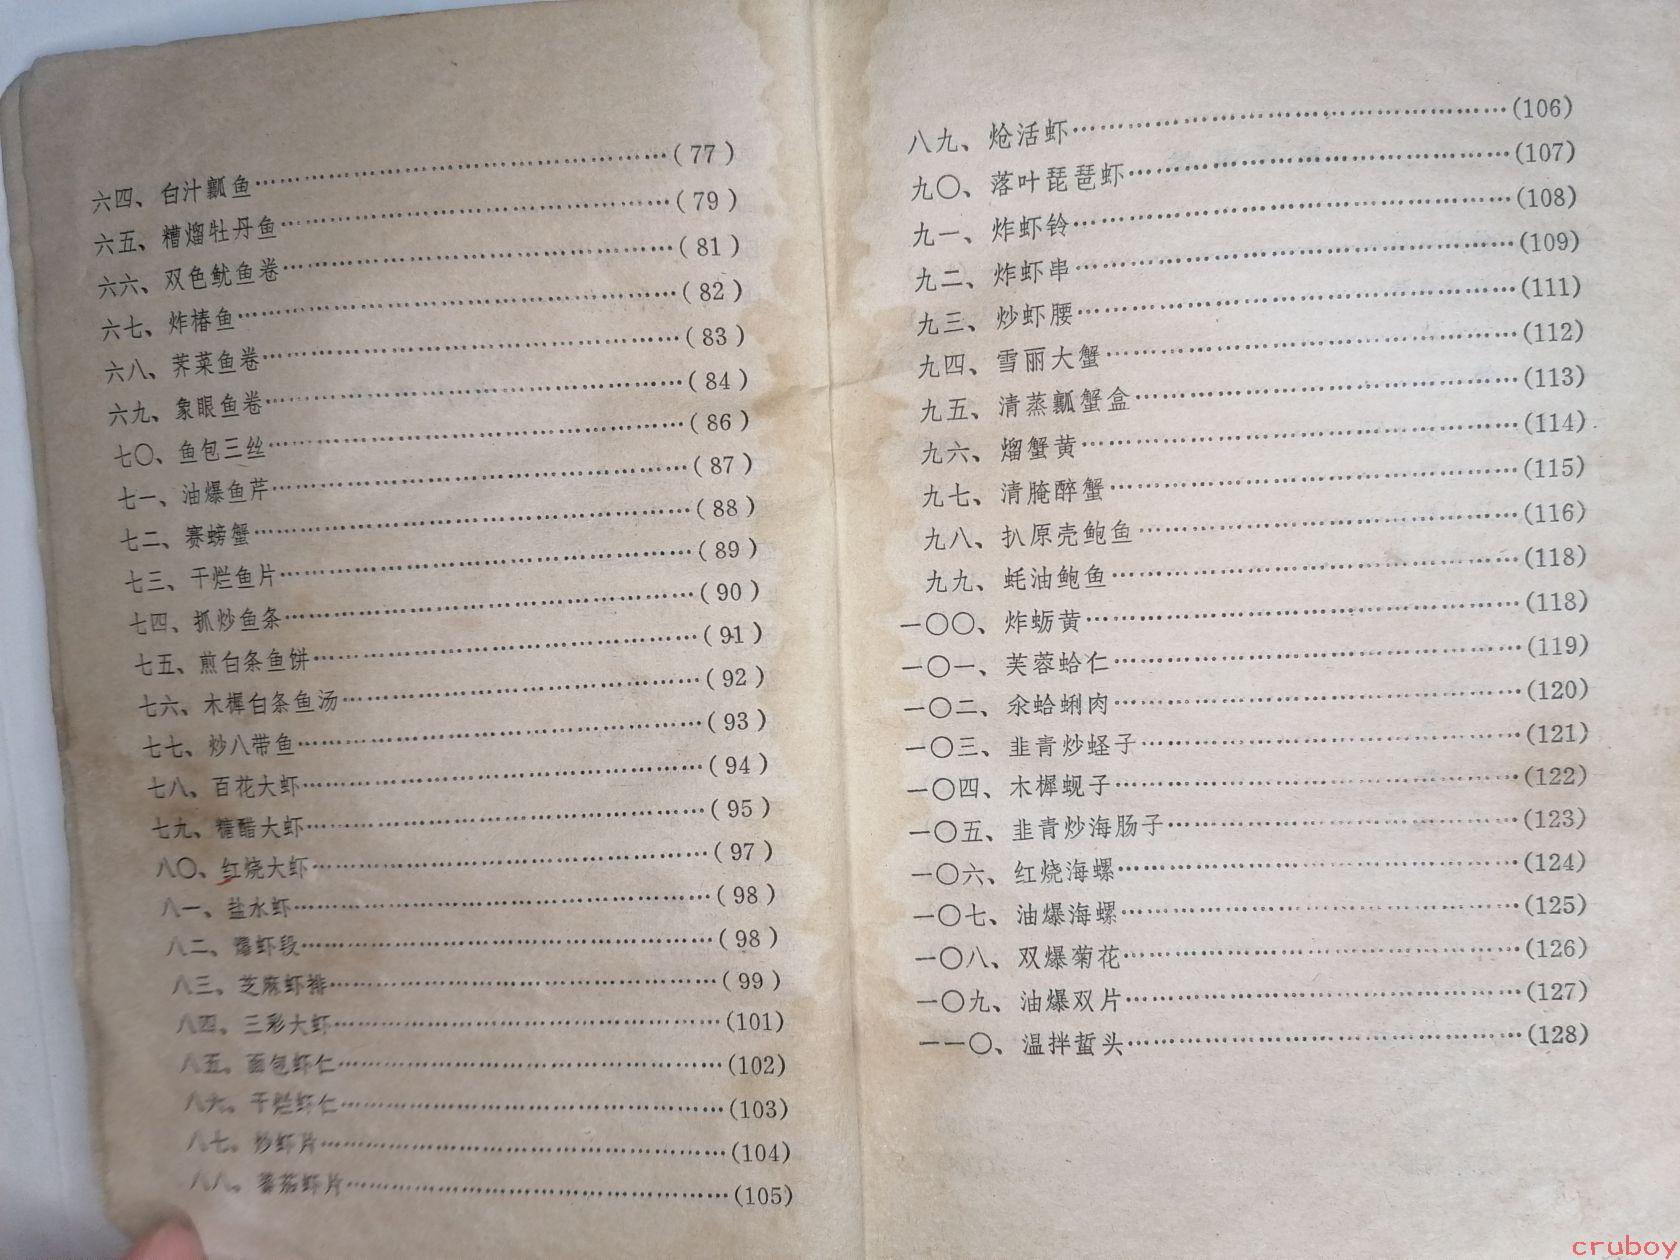 六四、白汁瓤鱼……………………………………(77)
六五、糟熘牡丹鱼…………………………………(79)
六六、双色鱿鱼卷…………………………………(81)
六七、炸椿鱼………………………………………(82)
六八、荠菜鱼卷……………………………………(83)
六九、象眼鱼卷……………………………………(84)
七〇、鱼包三丝……………………………………(86)
七一、油爆鱼芹……………………………………(87)
七二、赛螃蟹………………………………………(88)
七三、干烂鱼片……………………………………(89)
七四、抓炒鱼条……………………………………(90)
七五、煎白条鱼饼…………………………………(91)
七六、木樨白条鱼汤………………………………(92)
七七、炒八带鱼……………………………………(93)
七八、百花大虾……………………………………(94)
七九、糖醋大虾……………………………………(95)
八〇、红烧大虾……………………………………(97)
八一、盐水虾………………………………………(98)
八二、爆虾段………………………………………(98)
八三、芝麻虾排……………………………………(99)
八四、三彩大虾……………………………………(101)
八五、面包虾仁……………………………………(102)
八六、干烂虾仁……………………………………(103)
八七、炒虾片………………………………………(104)
八八、蕃茄虾片……………………………………(105)
八九、炝活虾………………………………………(106)
九〇、落叶琵琶虾…………………………………(107)
九一、炸虾铃………………………………………(108)
九二、炸虾串………………………………………(109)
九三、炒虾腰………………………………………(111)
九四、雪丽大蟹……………………………………(112)
九五、清蒸瓤蟹盒…………………………………(113)
九六、熘蟹黄………………………………………(114)
九七、清腌醉蟹……………………………………(115)
九八、扒原壳鲍鱼…………………………………(116)
九九、蚝油鲍鱼……………………………………(118)
一〇〇、炸蛎黄……………………………………(118)
一〇一、芙蓉蛤仁…………………………………(119)
一〇二、汆蛤蜊肉…………………………………(120)
一〇三、韭青炒蛏子………………………………(121)
一〇四、木樨蚬子…………………………………(122)
一〇五、韭青炒海肠子……………………………(123)
一〇六、红烧海螺…………………………………(124)
一〇七、油爆海螺…………………………………(125)
一〇八、双爆菊花…………………………………(126)
一〇九、油爆双片…………………………………(127)
一一〇、温拌蜇头…………………………………(128)
cruboy